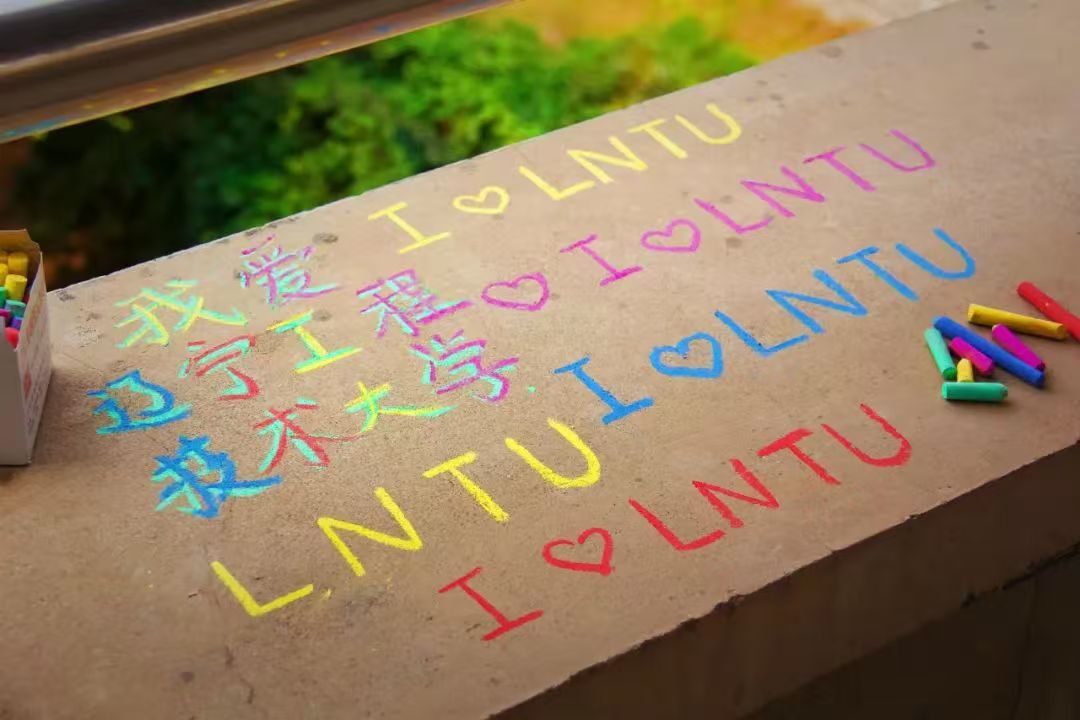 I ♡ LNTU
我爱
♡ I ♡ LNTU
辽宁工程
技术大学
I ♡ LNTU
LNTU
I ♡ LNTU